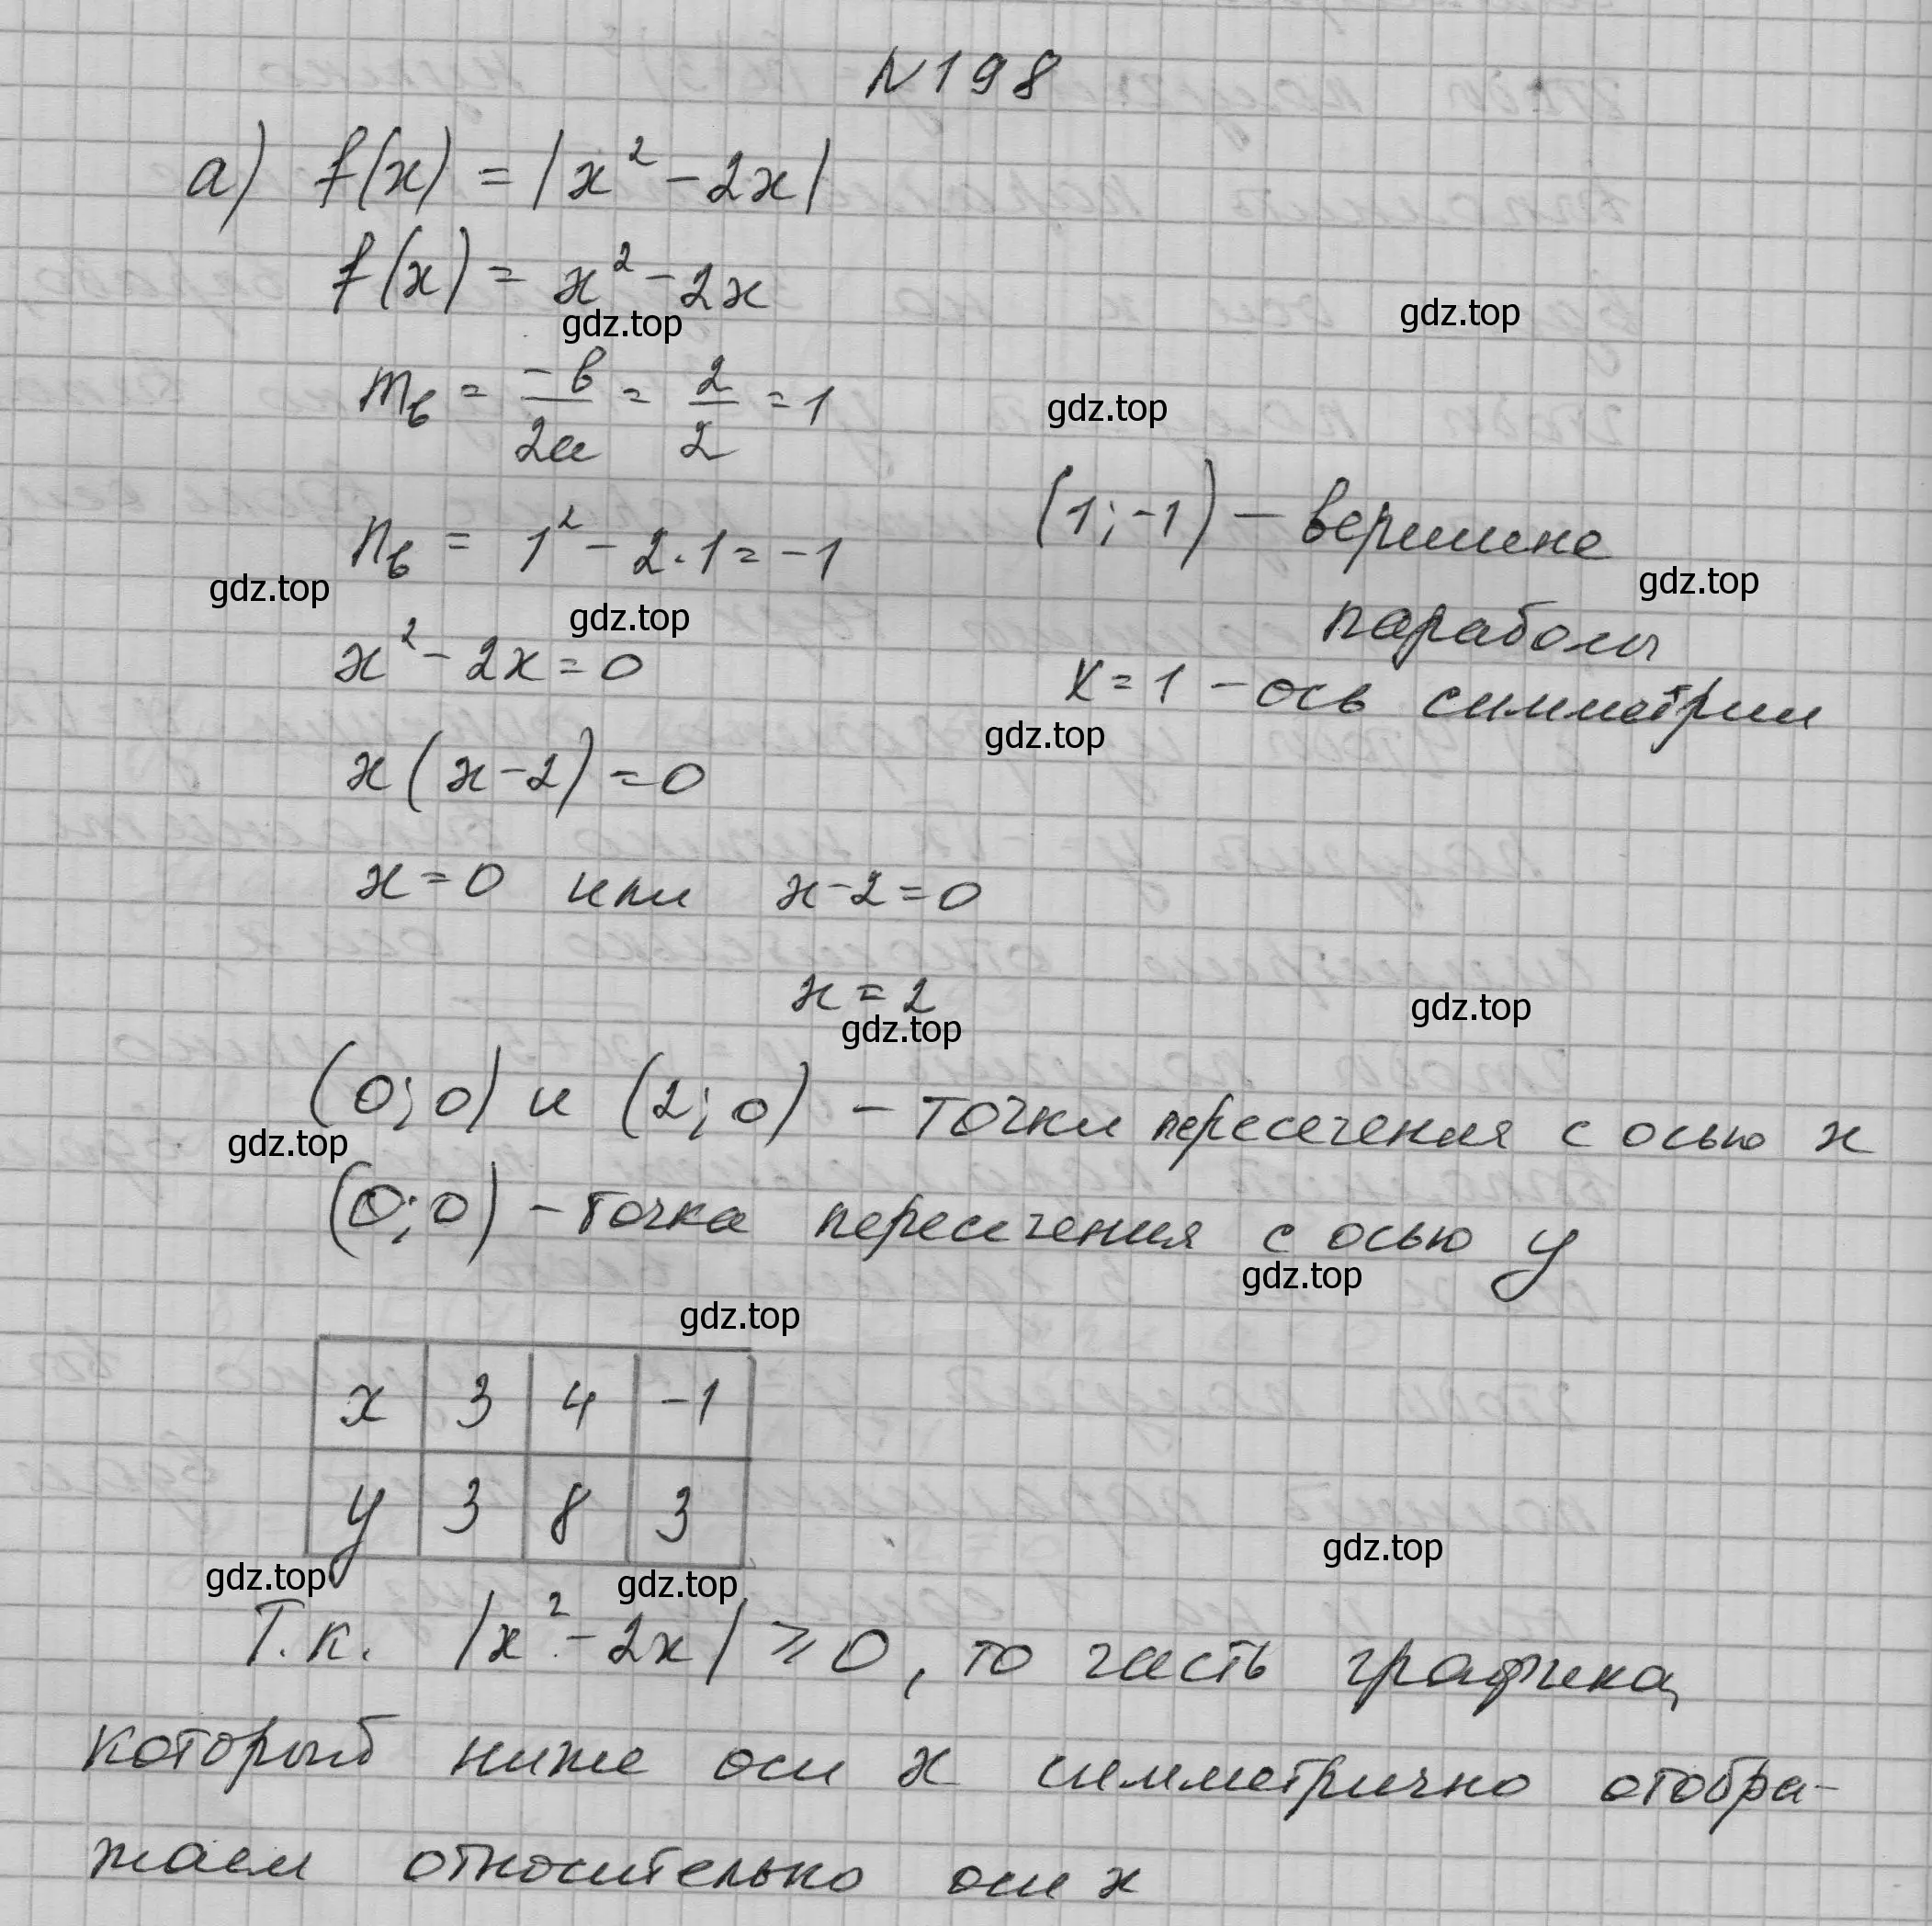 N 198
а) f(x) = |x² - 2x|
f(x) = x² - 2x
gdz.top
gdz.top
m_в = -b/2a = 2/2 = 1
gdz.top
n_в = 1² - 2·1 = -1
(1; -1) - вершина
gdz.top
gdz.top
gdz.top
параболы
x² - 2x = 0
x = 1 - ось симметрии
gdz.top
x(x - 2) = 0
x = 0 или x - 2 = 0
x = 2
gdz.top
gdz.top
(0; 0) и (2; 0) - точки пересечения с осью x
gdz.top
(0; 0) - точка пересечения с осью y
gdz.top
gdz.top
x 3 4 -1
y 3 8 3
gdz.top
gdz.top
gdz.top
Т.к. |x² - 2x| ≥ 0, то часть графика,
который ниже оси x симметрично отобра-
жаем относительно оси x